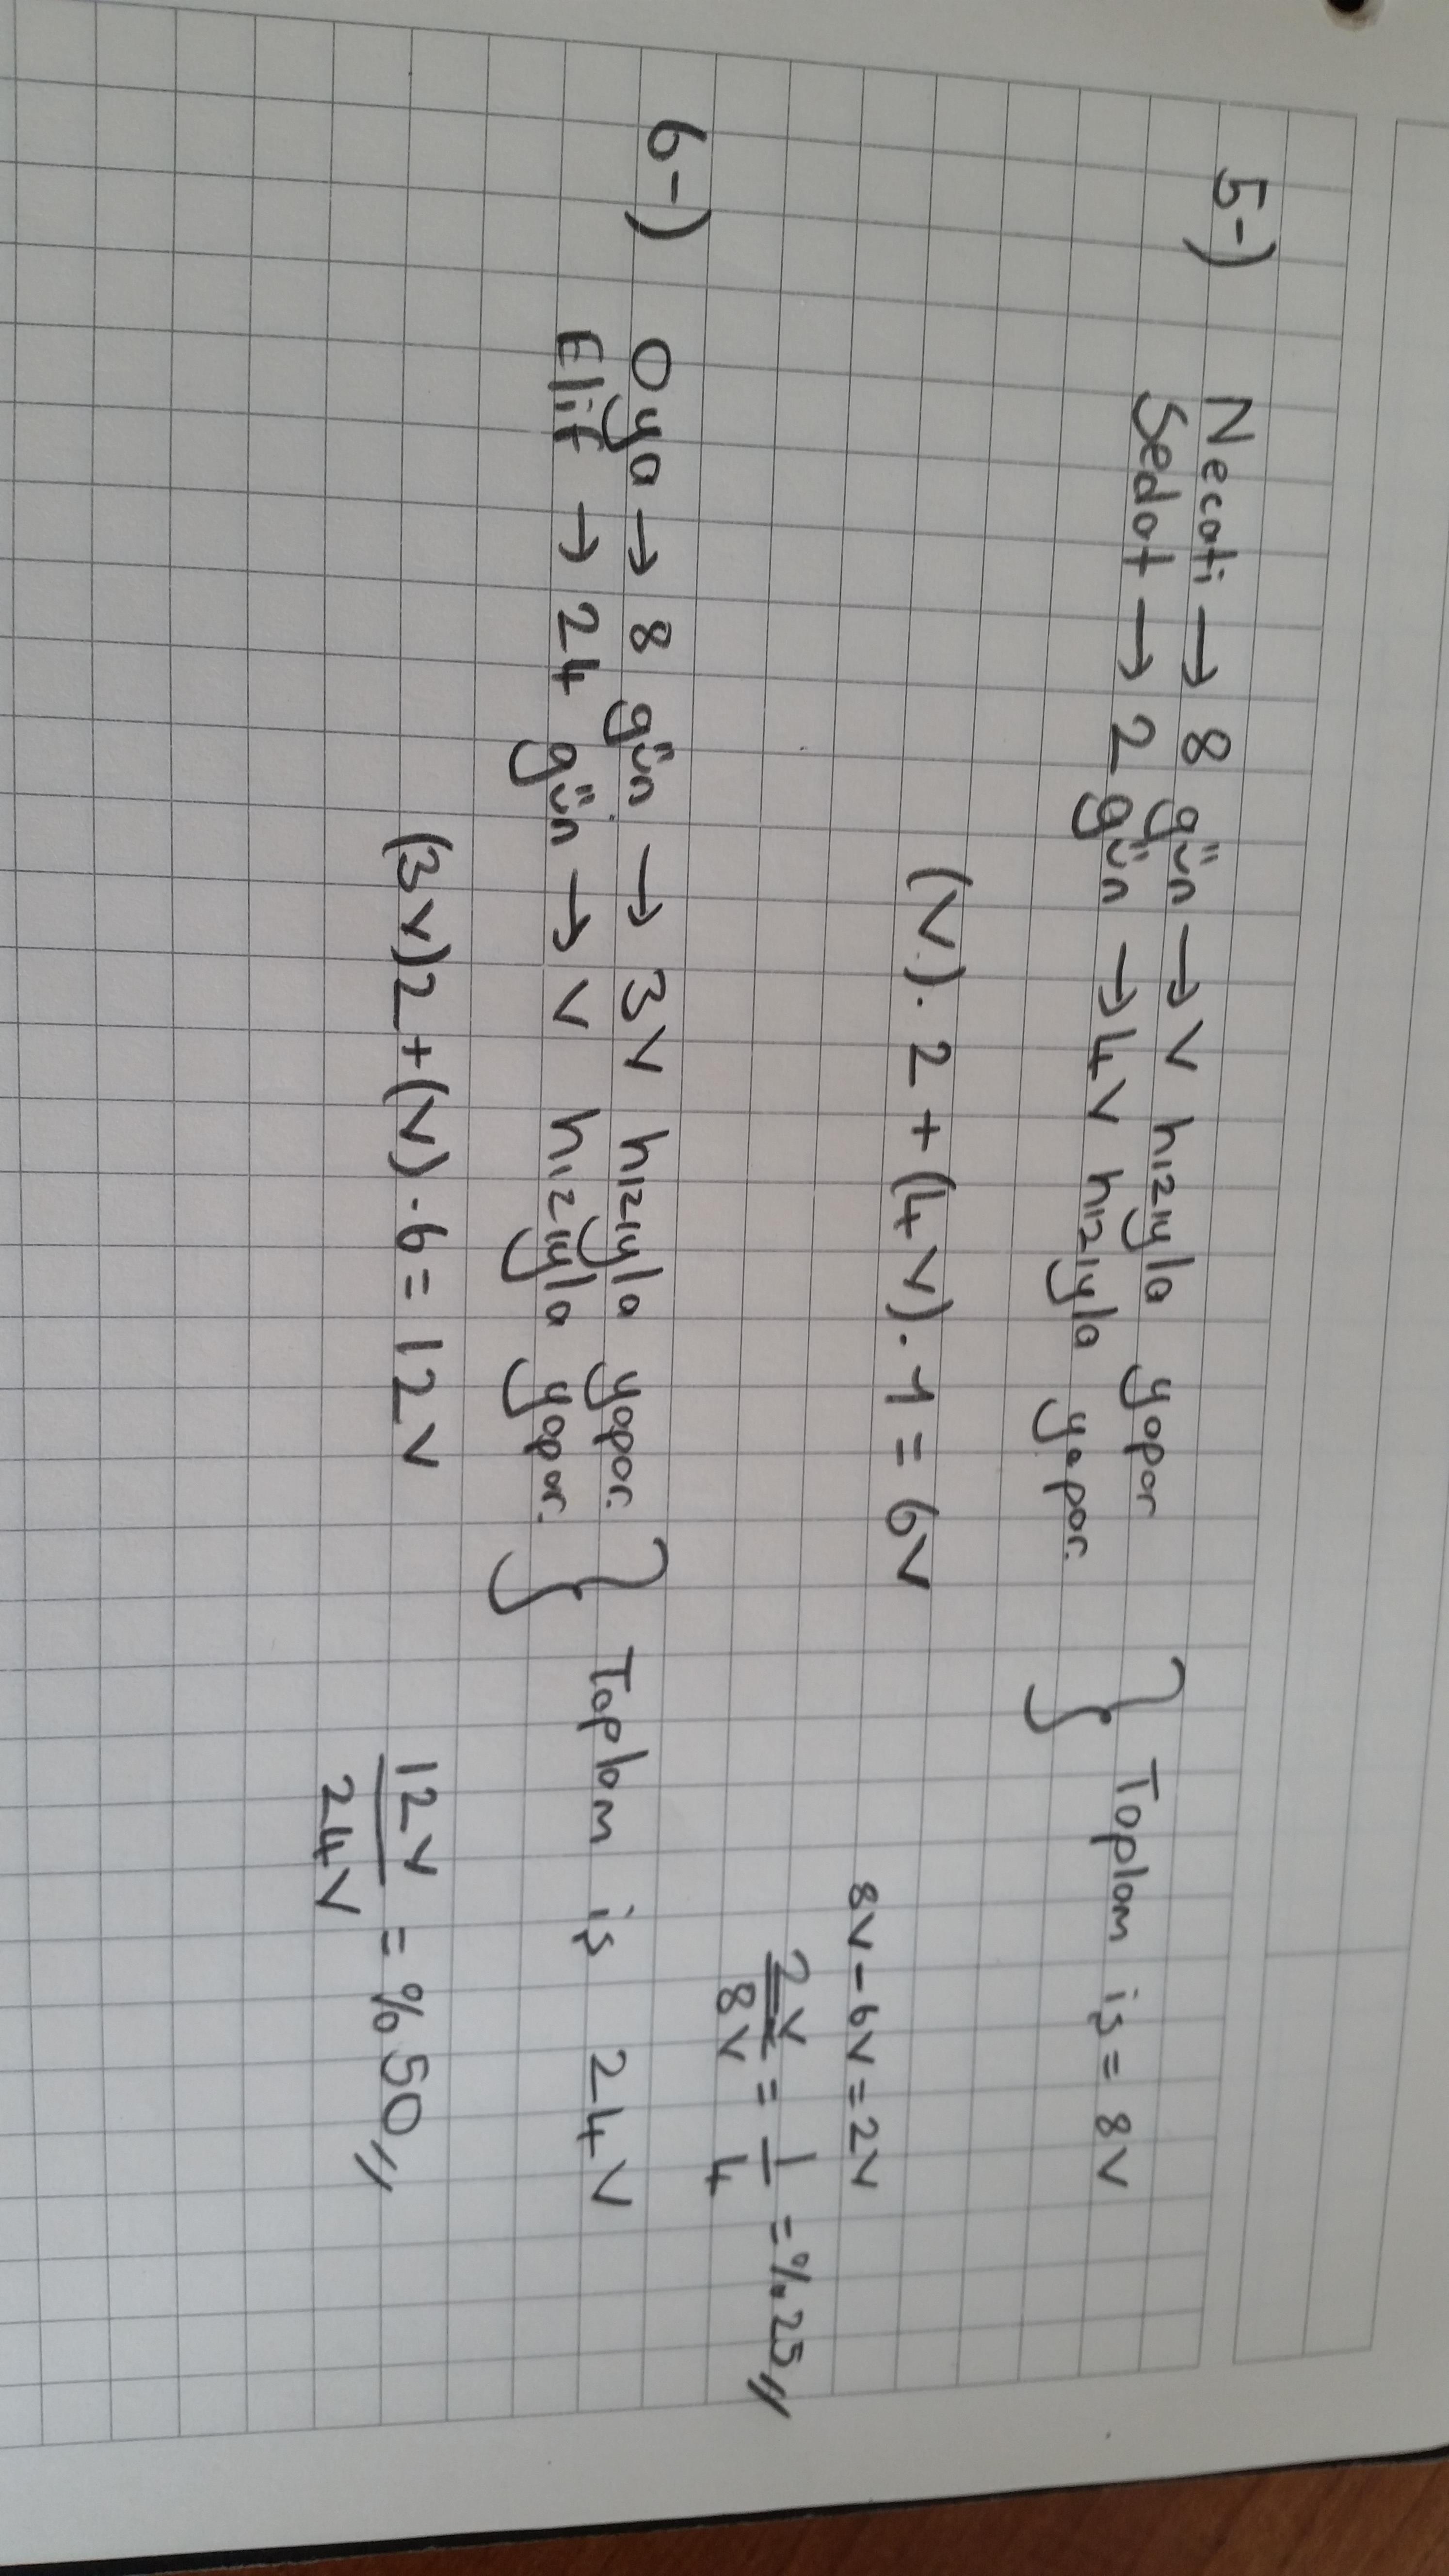 5-) Necati → 8 gün → V hızıyla yapar
Sedat → 2 gün → 4V hızıyla yapar. } Toplam iş = 8V
(V). 2 + (4V). 1 = 6V
8V - 6V = 2V
2V/8V = 1/4 = %25//
6-) Oya → 8 gün → 3V hızıyla yapar.
Elif → 24 gün → V hızıyla yapar. } Toplam iş 24V
(3V)2 + (V) . 6 = 12V
12V/24V = %50//